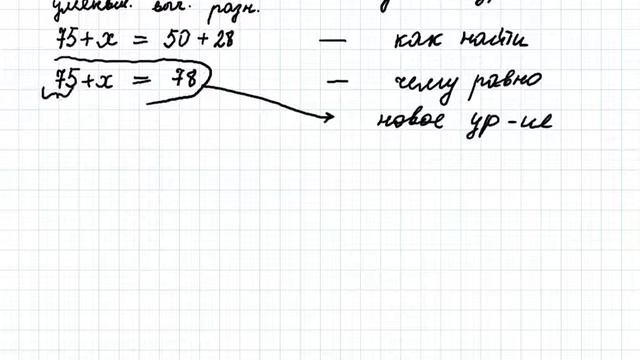 уменьш. выч. разн.
75+x = 50+28 — как найти
75+x = 78 — чему равно
новое ур-ие